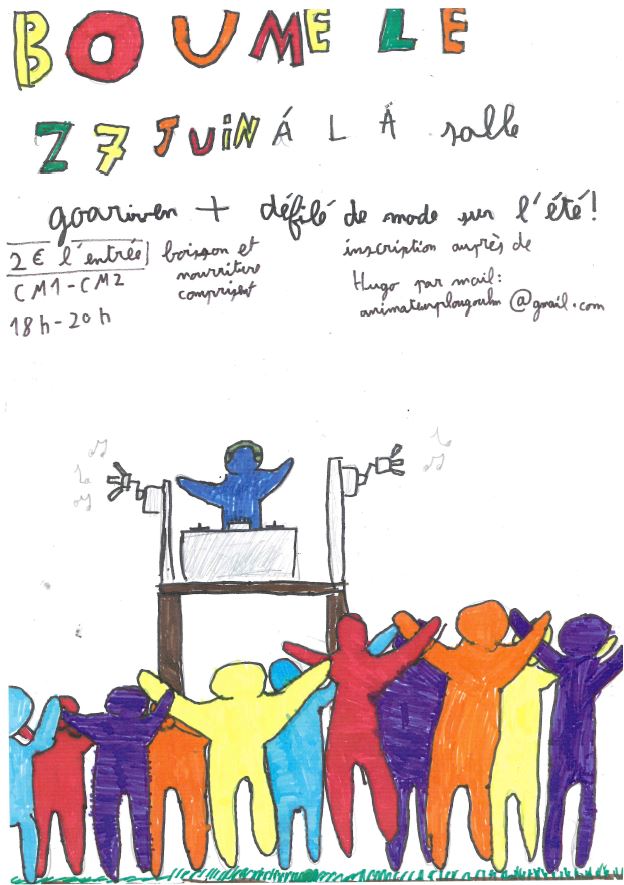 BOUME LE
27 JUIN À LA salle
goariven + défilé de mode sur l'été!
2 € l'entrée
boisson et
nourriture
comprisent
CM1-CM2
18h-20h
inscription auprès de
Hugo par mail:
animateurplougoulm@gmail.com